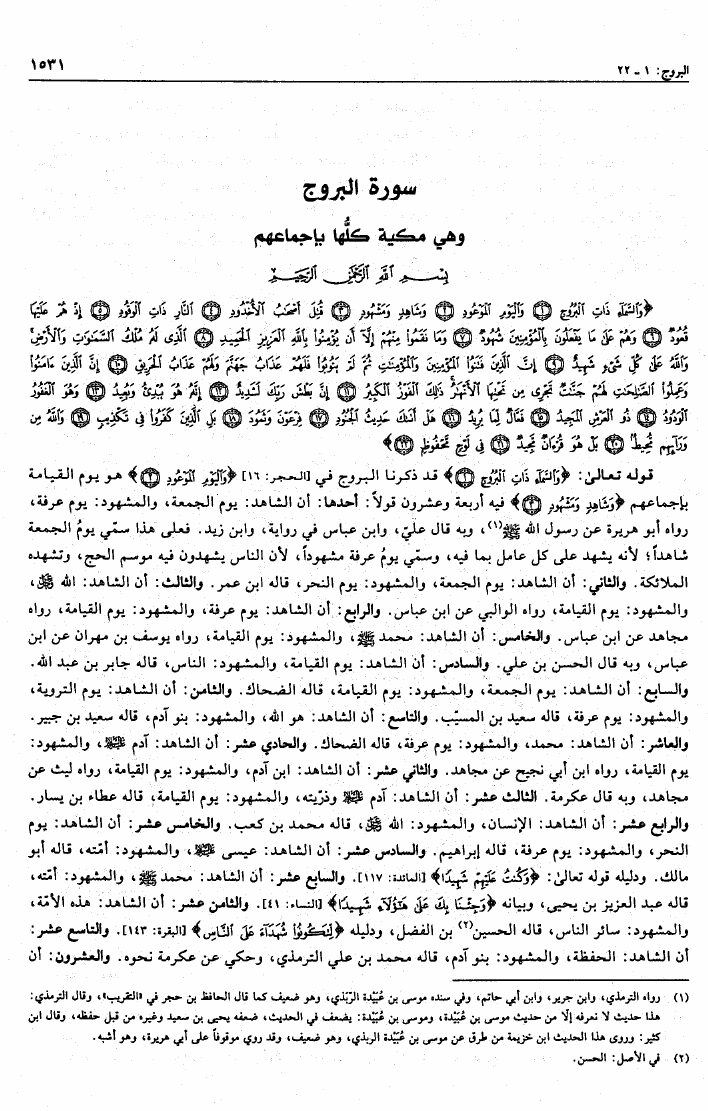 البروج: ١ ـ ٢٢
١٥٣١
سورة البروج
وهي مكية كلُّها بإجماعهم
بِسْمِ اللَّهِ الرَّحْمَنِ الرَّحِيمِ
﴿وَالسَّمَاءِ ذَاتِ الْبُرُوجِ ﴿١﴾ وَالْيَوْمِ الْمَوْعُودِ ﴿٢﴾ وَشَاهِدٍ وَمَشْهُودٍ ﴿٣﴾ قُتِلَ أَصْحَابُ الْأُخْدُودِ ﴿٤﴾ النَّارِ ذَاتِ الْوَقُودِ ﴿٥﴾ إِذْ هُمْ عَلَيْهَا
قُعُودٌ ﴿٦﴾ وَهُمْ عَلَى مَا يَفْعَلُونَ بِالْمُؤْمِنِينَ شُهُودٌ ﴿٧﴾ وَمَا نَقَمُوا مِنْهُمْ إِلَّا أَن يُؤْمِنُوا بِاللَّهِ الْعَزِيزِ الْحَمِيدِ ﴿٨﴾ الَّذِي لَهُ مُلْكُ السَّمَاوَاتِ وَالْأَرْضِ
وَاللَّهُ عَلَى كُلِّ شَيْءٍ شَهِيدٌ ﴿٩﴾ إِنَّ الَّذِينَ فَتَنُوا الْمُؤْمِنِينَ وَالْمُؤْمِنَاتِ ثُمَّ لَمْ يَتُوبُوا فَلَهُمْ عَذَابُ جَهَنَّمَ وَلَهُمْ عَذَابُ الْحَرِيقِ ﴿١٠﴾ إِنَّ الَّذِينَ ءَامَنُوا
وَعَمِلُوا الصَّالِحَاتِ لَهُمْ جَنَّاتٌ تَجْرِي مِن تَحْتِهَا الْأَنْهَارُ ذَلِكَ الْفَوْزُ الْكَبِيرُ ﴿١١﴾ إِنَّ بَطْشَ رَبِّكَ لَشَدِيدٌ ﴿١٢﴾ إِنَّهُ هُوَ يُبْدِئُ وَيُعِيدُ ﴿١٣﴾ وَهُوَ الْغَفُورُ
الْوَدُودُ ﴿١٤﴾ ذُو الْعَرْشِ الْمَجِيدُ ﴿١٥﴾ فَعَّالٌ لِمَا يُرِيدُ ﴿١٦﴾ هَلْ أَتَاكَ حَدِيثُ الْجُنُودِ ﴿١٧﴾ فِرْعَوْنَ وَثَمُودَ ﴿١٨﴾ بَلِ الَّذِينَ كَفَرُوا فِي تَكْذِيبٍ ﴿١٩﴾ وَاللَّهُ مِن
وَرَائِهِم مُّحِيطٌ ﴿٢٠﴾ بَلْ هُوَ قُرْءَانٌ مَّجِيدٌ ﴿٢١﴾ فِي لَوْحٍ مَّحْفُوظٍ ﴿٢٢﴾﴾
قوله تعالىٰ: ﴿وَالسَّمَاءِ ذَاتِ الْبُرُوجِ ﴿١﴾﴾ قد ذكرنا البروج في [الحجر: ١٦] ﴿وَالْيَوْمِ الْمَوْعُودِ ﴿٢﴾﴾ هو يوم القيامة
بإجماعهم ﴿وَشَاهِدٍ وَمَشْهُودٍ ﴿٣﴾﴾ فيه أربعة وعشرون قولاً: أحدها: أن الشاهد: يوم الجمعة، والمشهود: يوم عرفة،
رواه أبو هريرة عن رسول الله ﷺ(١)، وبه قال عليّ، وابن عباس في رواية، وابن زيد. فعلى هذا سمّي يومُ الجمعة
شاهداً؛ لأنه يشهد على كل عامل بما فيه، وسمّي يومُ عرفة مشهوداً، لأن الناس يشهدون فيه موسم الحج، وتشهده
الملائكة. والثاني: أن الشاهد: يوم الجمعة، والمشهود: يوم النحر، قاله ابن عمر. والثالث: أن الشاهد: الله ﷻ،
والمشهود: يوم القيامة، رواه الوالبي عن ابن عباس. والرابع: أن الشاهد: يوم عرفة، والمشهود: يوم القيامة، رواه
مجاهد عن ابن عباس. والخامس: أن الشاهد: محمد ﷺ، والمشهود: يوم القيامة، رواه يوسف بن مهران عن ابن
عباس، وبه قال الحسن بن علي. والسادس: أن الشاهد: يوم القيامة، والمشهود: الناس، قاله جابر بن عبد الله.
والسابع: أن الشاهد: يوم الجمعة، والمشهود: يوم القيامة، قاله الضحاك. والثامن: أن الشاهد: يوم التروية،
والمشهود: يوم عرفة، قاله سعيد بن المسيّب. والتاسع: أن الشاهد: هو الله، والمشهود: بنو آدم، قاله سعيد بن جبير.
والعاشر: أن الشاهد: محمد، والمشهود: يوم عرفة، قاله الضحاك. والحادي عشر: أن الشاهد: آدم ﵇، والمشهود:
يوم القيامة، رواه ابن أبي نجيح عن مجاهد. والثاني عشر: أن الشاهد: ابن آدم، والمشهود: يوم القيامة، رواه ليث عن
مجاهد، وبه قال عكرمة. الثالث عشر: أن الشاهد: آدم ﵇ وذرّيته، والمشهود: يوم القيامة، قاله عطاء بن يسار.
والرابع عشر: أن الشاهد: الإنسان، والمشهود: الله ﷻ، قاله محمد بن كعب. والخامس عشر: أن الشاهد: يوم
النحر، والمشهود: يوم عرفة، قاله إبراهيم. والسادس عشر: أن الشاهد: عيسى ﵇، والمشهود: أمّته، قاله أبو
مالك. ودليله قوله تعالىٰ: ﴿وَكُنتُ عَلَيْهِمْ شَهِيدًا﴾ [المائدة: ١١٧]. والسابع عشر: أن الشاهد: محمد ﷺ، والمشهود: أمّته،
قاله عبد العزيز بن يحيى، وبيانه ﴿وَجِئْنَا بِكَ عَلَى هَؤُلَاءِ شَهِيدًا﴾ [النساء: ٤١]. والثامن عشر: أن الشاهد: هذه الأمّة،
والمشهود: سائر الناس، قاله الحسين(٢) بن الفضل، ودليله ﴿لِتَكُونُوا شُهَدَاءَ عَلَى النَّاسِ﴾ [البقرة: ١٤٣]. والتاسع عشر:
أن الشاهد: الحفظة، والمشهود: بنو آدم، قاله محمد بن علي الترمذي، وحكي عن عكرمة نحوه. والعشرون: أن
(١) رواه الترمذي، وابن جرير، وابن أبي حاتم، وفي سنده موسى بن عُبَيْدة الرَّبَذي، وهو ضعيف كما قال الحافظ بن حجر في «التقريب»، وقال الترمذي:
هذا حديث لا نعرفه إلّا من حديث موسى بن عُبَيْدة، وموسى بن عُبَيْدة: يضعف في الحديث، ضعفه يحيى بن سعيد وغيره من قبل حفظه، وقال ابن
كثير: وروى هذا الحديث ابن خزيمة من طرق عن موسى بن عُبَيْدة الربذي، وهو ضعيف، وقد روي موقوفاً على أبي هريرة، وهو أشبه.
(٢) في الأصل: الحسن.